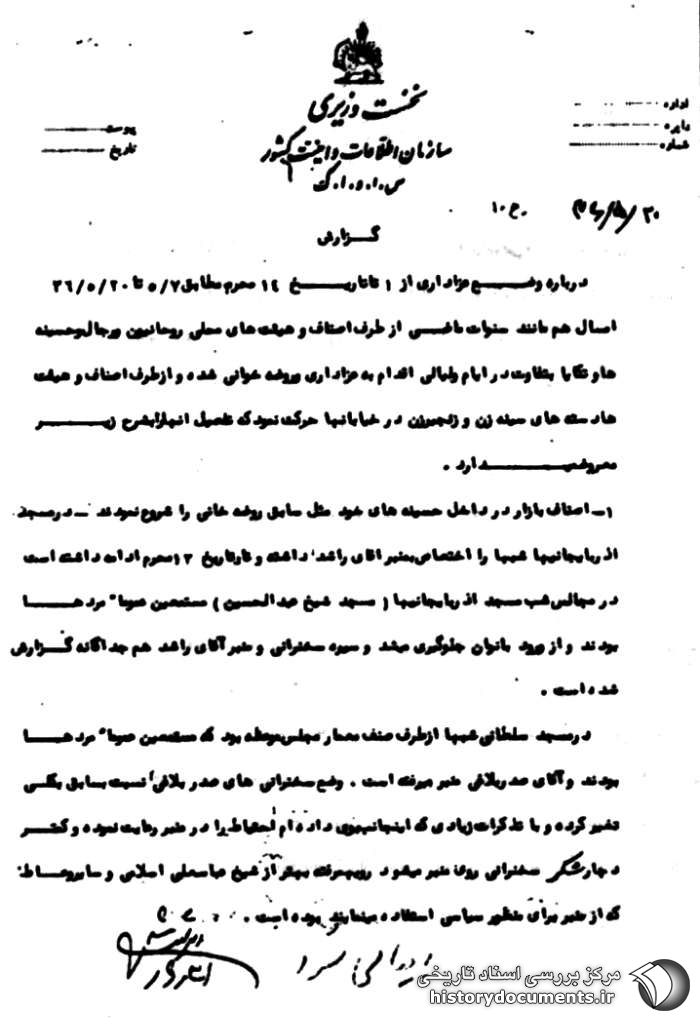 نخست وزیری
سازمان اطلاعات و امنیت کشور
س.ا.و.ا.ک
اداره
دایره
شماره
پیوست
تاریخ
گزارش
درباره وضع عزاداری از ۱ تا تاریخ ۱۴ محرم مطابق ۵/۷ تا ۳۶/۵/۲۰
امسال هم مانند سنوات ماضی از طرف اصناف و هیئت های محلی روحانیون ورجال وحسینه
ها و تکایا بتفاوت در ایام ولیالی اقدام به عزاداری وروضه خوانی شده و از طرف اصناف و هیئت
ها دسته های سینه زن و زنجیرزن در خیابانها حرکت نمود که تفصیل آنها را بشرح زیر
معروض میدارد .
۱ـ اصناف بازار در داخل حسینه های خود مثل سابق روضه خانی را شروع نمودند ـ در مسجد
آذربایجانیها شبها را اختصاص بمنبر آقای راشد داشته و تا تاریخ ۱۳ محرم ادامه داشته است
در مجالس شب مسجد آذربایجانیها ( مسجد شیخ عبدالحسین ) مستمعین عموماً مردها
بودند و از ورود بانوان جلوگیری میشد و سیره سخنرانی و منبر آقای راشد هم جداگانه گزارش
شده است .
در مسجد سلطانی شبها از طرف صنف معمار مجلس موعظه بود که مستمعین عموماً مردها
بودند و آقای صدر بلاغی منبر میرفته است . وضع سخنرانی های صدر بلاغی نسبت بسابق بکلی
تغیر کرده و با تذکرات زیادی که اینجانب بوی داده ام احتیاط را در منبر رعایت نموده و کمتر
دچار سخنرانی روی منبر میشود رویهمرفته بهتر از شیخ عباسعلی اسلامی و سایر وعاظ
که از منبر برای منظور سیاسی استفاده مینمایند بوده است .
مرکز بررسی اسناد تاریخی
historydocuments.ir